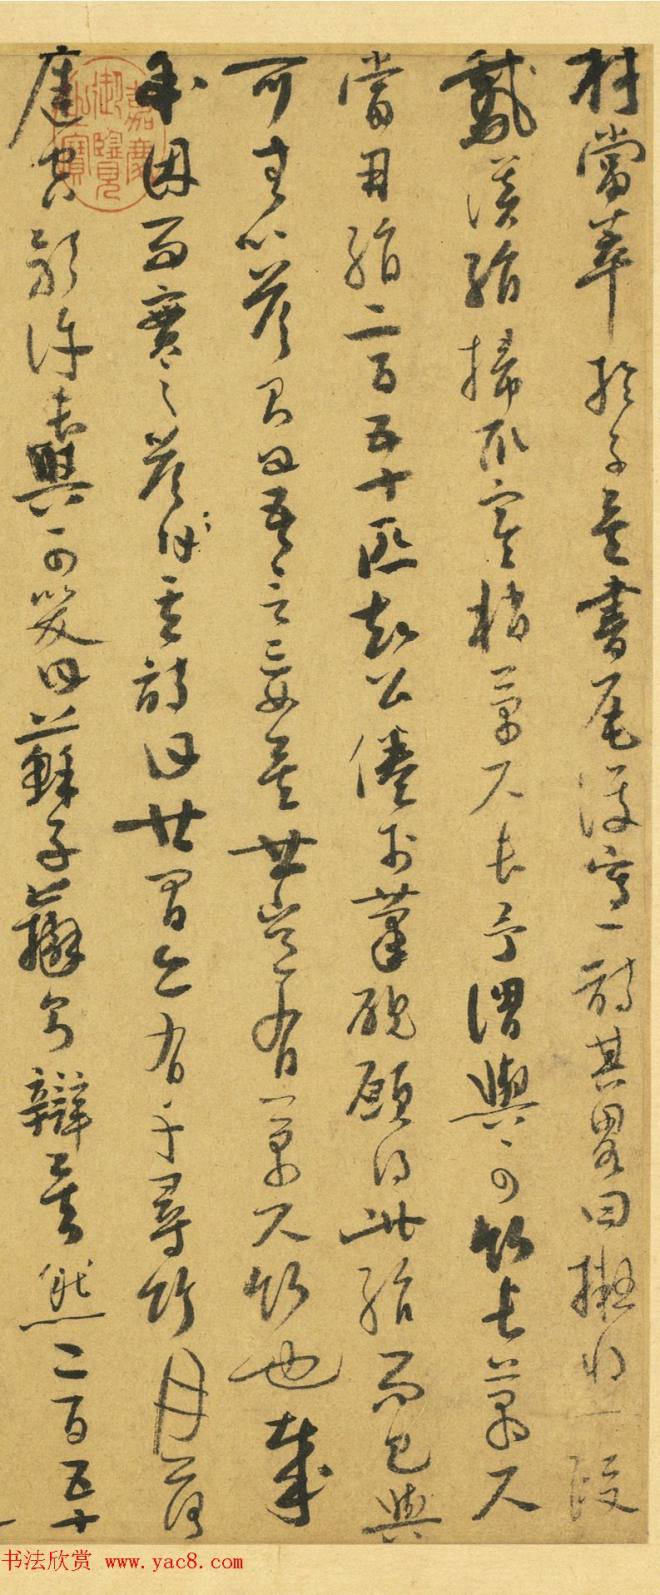 材當萃於子矣書尾復寫一詩其略曰擬將一段
鵝溪絹掃取寒梢萬尺長予謂與可竹長萬尺
當用絹二百五十匹知公倦於筆硯願得此絹而已與
可無以答則曰吾言妄矣世豈有萬尺竹也哉
余因而實之答其詩曰世間亦有千尋竹月落
庭空影許長與可笑曰蘇子辯則辯矣然二百五十
嘉慶御覽之寶
书法欣赏 www.yac8.com